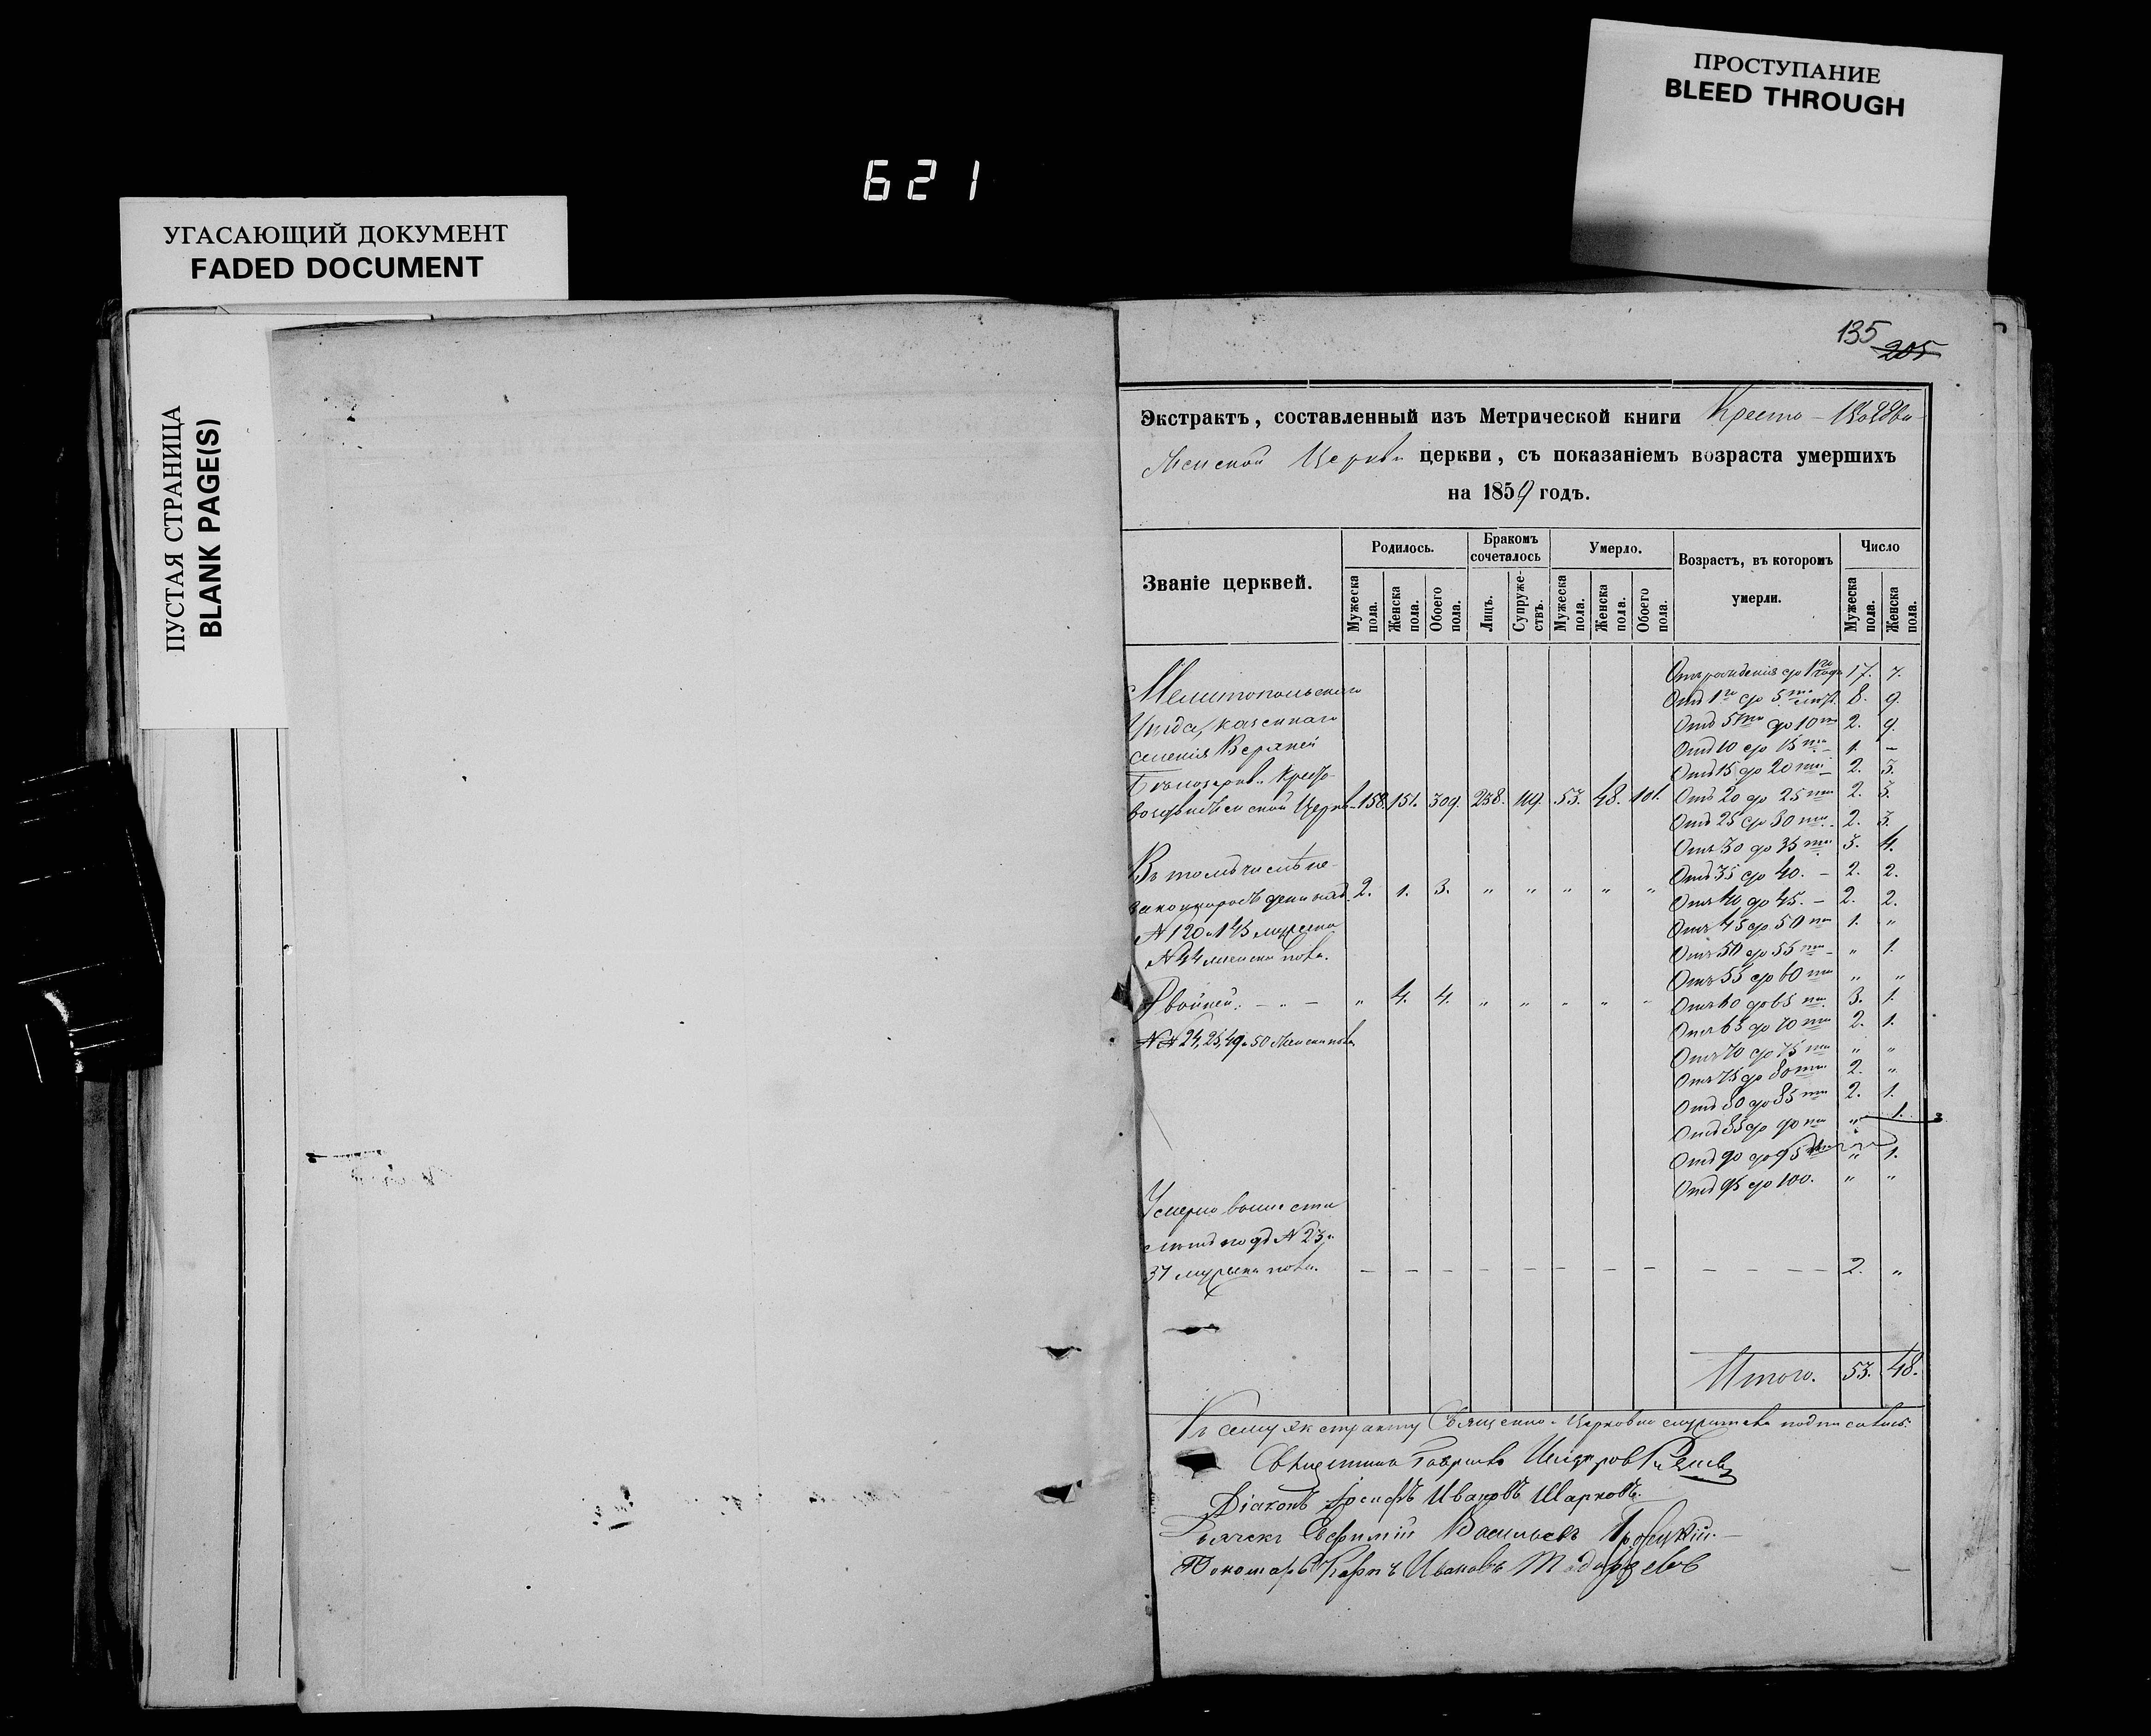 ПРОСТУПАНИЕ
BLEED THROUGH
621
УГАСАЮЩИЙ ДОКУМЕНТ
FADED DOCUMENT
ПУСТАЯ СТРАНИЦА
BLANK PAGE(S)
135
205
Экстрактъ, составленный изъ Метрической книги Кресто-Воздви-
женской Церкви церкви, съ показаніемъ возраста умершихъ
на 1859 годъ.
Званіе церквей.
Родилось.
Бракомъ сочеталось
Умерло.
Возрастъ, въ которомъ умерли.
Число
Мужеска пола.
Женска пола.
Обоего пола.
Лицъ.
Супруже-ствъ.
Мужеска пола.
Женска пола.
Обоего пола.
Мужеска пола.
Женска пола.
Отъ рожденія до 1го года 17. 7.
Мелитопольскаго
Отъ 1го до 5ти 8. 9.
Уѣзда, казеннаго
Отъ 5ти до 10ти 2. 9.
селенія Верхней
Отъ 10 до 15ти 1. –
Отъ 15 до 20ти 2. 3.
Бѣлозерки Кресто-
воздвиженской Церкви 158. 151. 309. 238. 119. 53. 48. 101. Отъ 20 до 25ти 2. 3.
Отъ 25 до 30ти 2. 3.
Отъ 30 до 35ти 3. 4.
Въ томъ числѣ не-
Отъ 35 до 40. – 2. 2.
2. 1. 3. „ „ „ „ „ Отъ 40 до 45. – 2. 2.
№ 120 и 145 мужеска
Отъ 45 до 50ти 1. „
№ 44 женска пола.
Отъ 50 до 55ти „ 1.
Отъ 55 до 60ти „ „
Двойней: – „ – „ 4. 4. „ „ „ „ „ Отъ 60 до 65ти 3. 1.
Отъ 65 до 70ти 2. 1.
№№ 24, 25, 49 и 50 Женска пола
Отъ 70 до 75ти „ „
Отъ 75 до 80ти 2. „
Отъ 80 до 85ти 2. 1.
Отъ 85 до 90ти „ 1.
Отъ 90 до 95ти „ 1.
Отъ 95 до 100. „ „
Умерло
подъ № 23 и
37 мужеска пола. – – – – – – – – – – – – 2. „
Итого. 53. 48.
Къ сему экстракту Священно-Церковно служители подписались:
Священникъ Гавріилъ
Діаконъ Іосифъ Ивановъ Шарковъ.
Дьячекъ Евфимій Васильевъ
Пономарь Карпъ Ивановъ